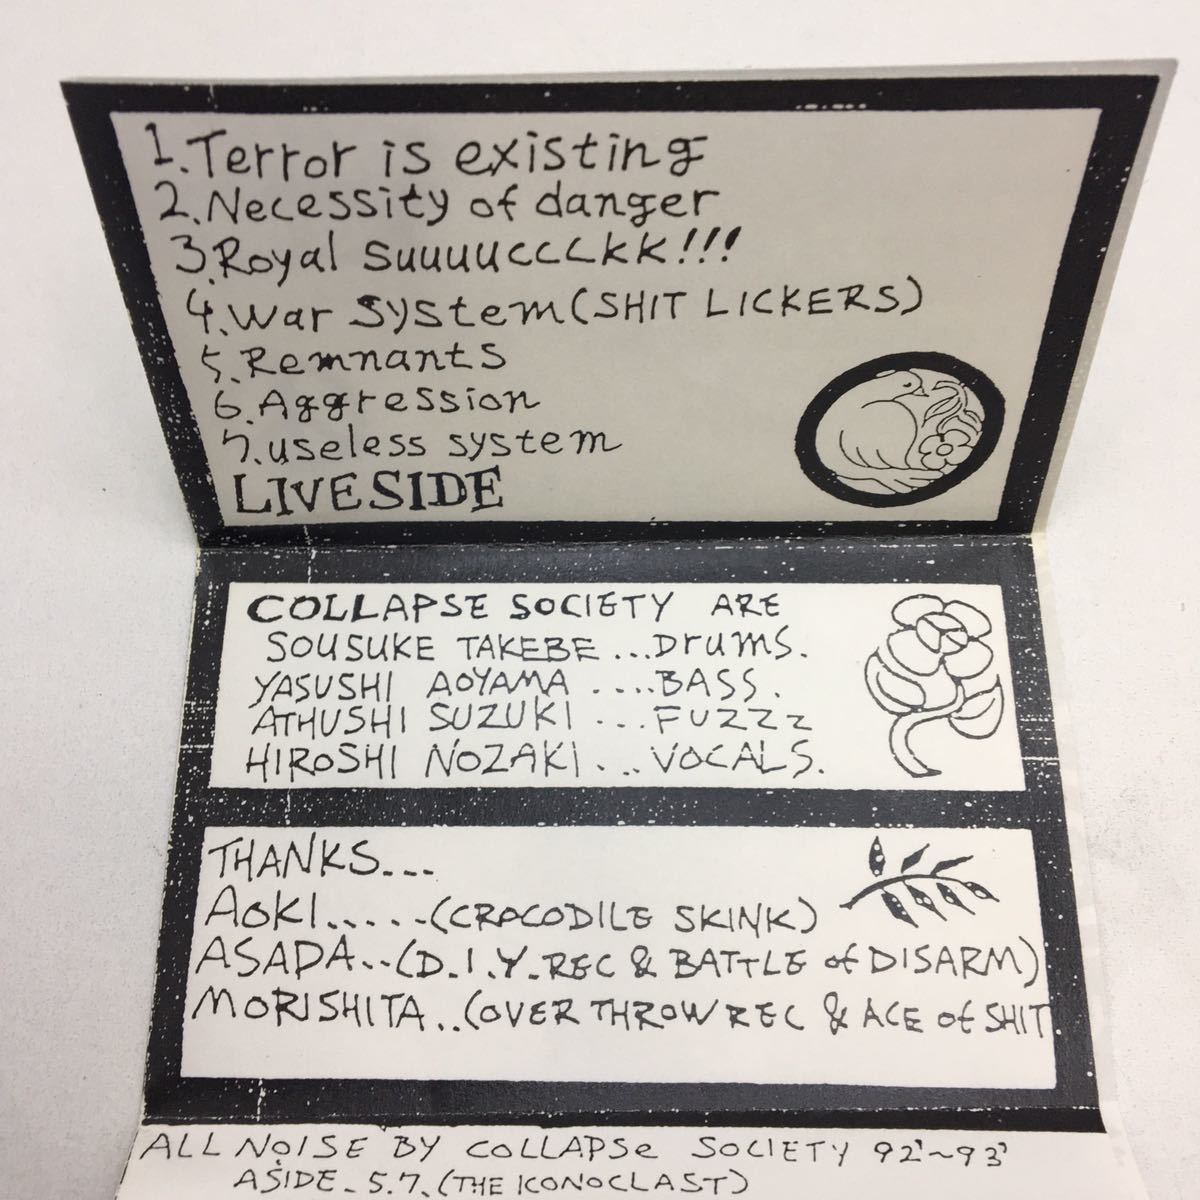 1. Terror is existing
2. Necessity of danger
3. Royal suuuucccckk!!!
4. War system (SHIT LICKERS)
5. Remnants
6. Aggression
7. useless system
LIVE SIDE
COLLAPSE SOCIETY ARE
SOUSUKE TAKEBE ... Drums.
YASUSHI AOYAMA .... BASS.
ATHUSHI SUZUKI ... FUZZZ
HIROSHI NOZAKI ... VOCALS.
THANKS...
AOKI.....(CROCODILE SKINK)
ASADA..(D.I.Y.REC & BATTLE of DISARM)
MORISHITA..(OVER THROW REC & ACE of SHIT
ALL NOISE BY COLLAPSE SOCIETY 92'~93'
ASIDE. 5.7. (THE ICONOCLAST)